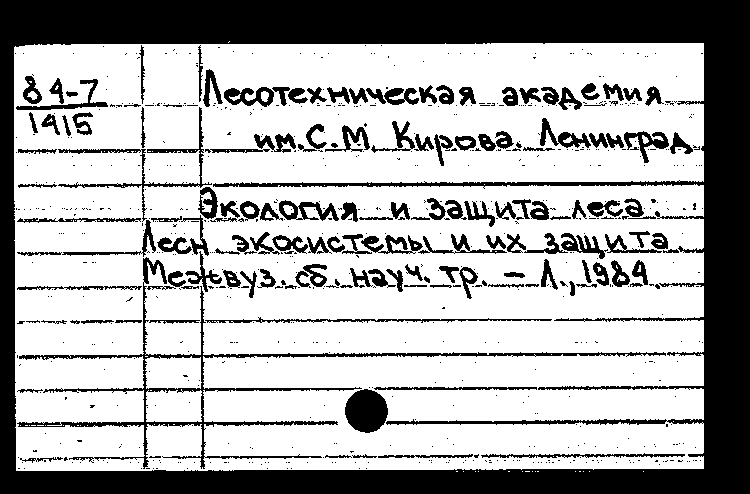 84-7
1415
Лесотехническая академия
им. С. М. Кирова. Ленинград
Экология и защита леса:
Лесн. экосистемы и их защита.
Межвуз. сб. науч. тр. – Л., 1984.